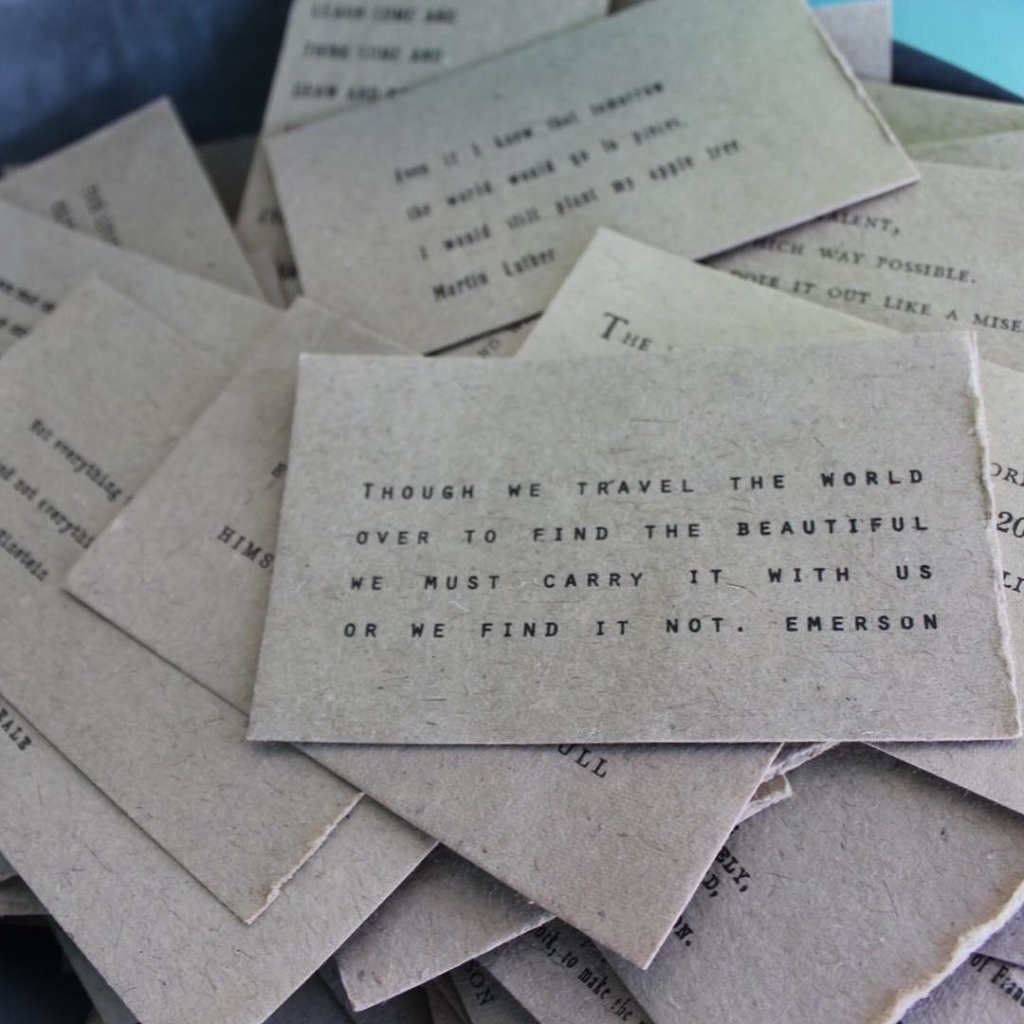 LEARN SOME AND
THINK SOME AND
DRAW AND
Even if I knew that tomorrow
the world would go to pieces,
I would still plant my apple tree
Martin Luther
ALENT,
HICH WAY POSSIBLE.
DOLE IT OUT LIKE A MISE
THE
Not everything
not everythi
Einstein
HIMS
THOUGH WE TRAVEL THE WORLD
OVER TO FIND THE BEAUTIFUL
WE MUST CARRY IT WITH US
OR WE FIND IT NOT. EMERSON
20
ULL
ELY,
D,
N.
to make the
SON
of Franc